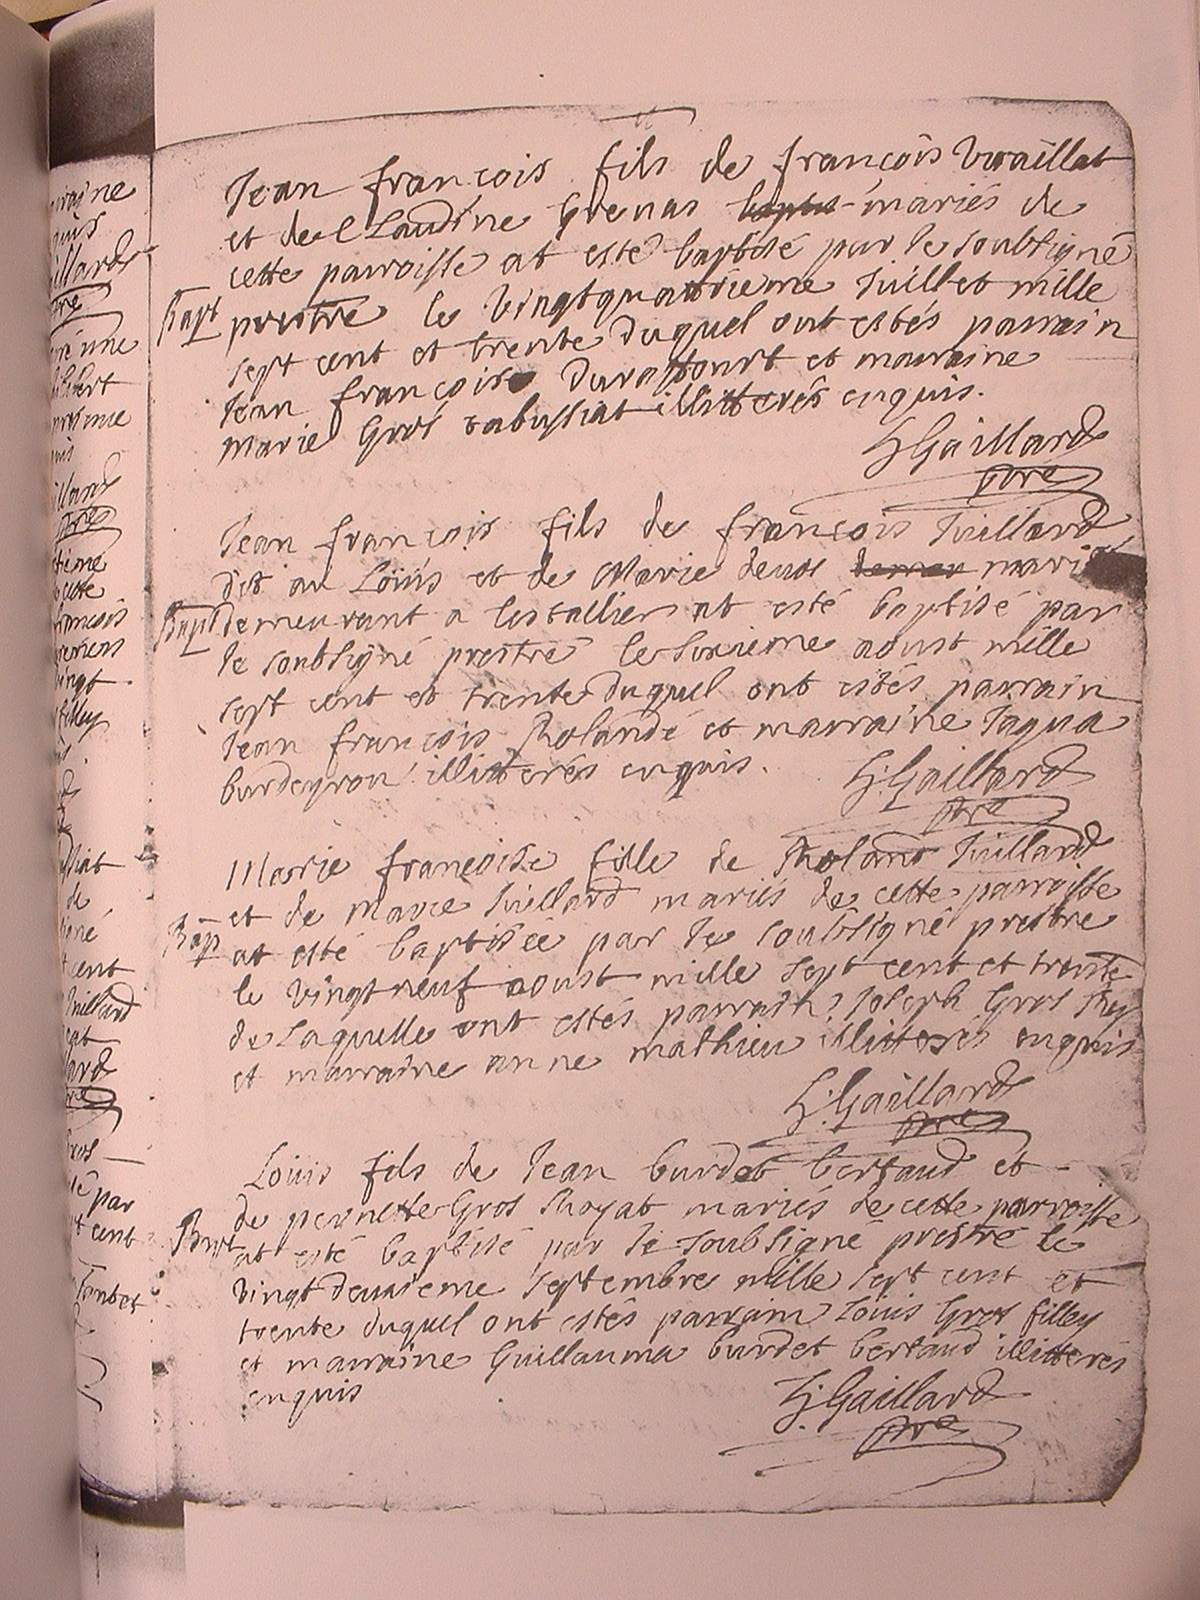 Jean françois fils de françois Vuaillat
et de Claudine Grenas mariés de
cette parroisse at esté baptisé par le soubsigné
Bapt prestre le vingtquatrieme Juillet mille
sept cent et trente duquel ont estés parrain
Jean françois Duraffourt et marraine
Marie Gros illitterés enquis.
h Gaillard
pbre
Jean françois fils de françois Juillard
dit au Loüis et de Marie mari
Bapt demeurant a Lestallier at esté baptisé par
le soubsigné prestre le sixieme aoust mille
sept cent et trente duquel ont estés parrain
Jean françois Rolandé et marraine Jaqua
burdeyron illitterés enquis.
h: Gaillard
pbre
Marie françoise fille de Roland Juillard
et de Marie Juillard mariés de cette parroisse
Bap at esté baptisée par le soubsigné prestre
le vingt neuf aoust mille sept cent et trente
de laquelle ont estés parrain Joseph Gros
et marraine anne mathieu illitterés enquis
h: Gaillard
pbre
Loüis fils de Jean burdet bertaud et
de pernette Gros mariés de cette parroisse
Bapt at esté baptisé par le soubsigné prestre le
vingt deuxieme septembre mille sept cent et
trente duquel ont estés parrain Loüis Gros filley
et marraine Guillauma burdet bertaud illitterés
enquis
h: Gaillard
pbre